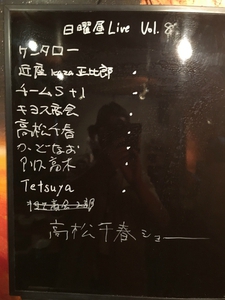 日曜屋Live Vol.8
ケンタロー
近座 正比郎
チームS+1
モヨス商会
高松千春
かどなお
アリス高木
Tetsuya
高松千春ショー